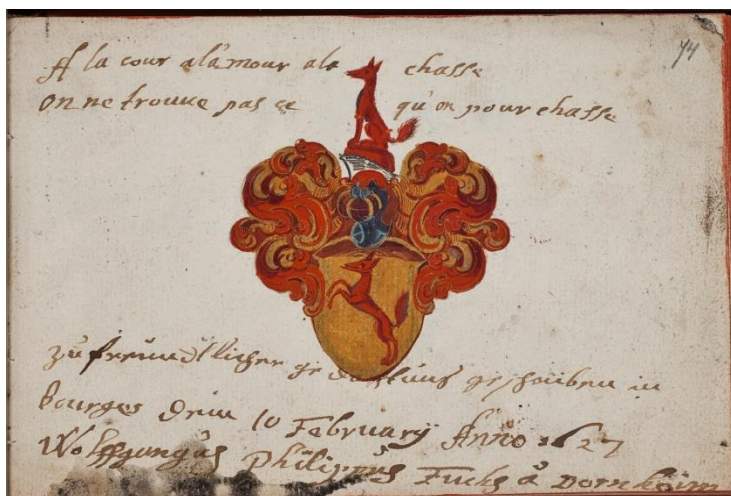 A la cour a lámour a la chasse
on ne trouve pas ce qu'on pourchasse
74
zu freundtlicher gedächtnüs geschriben in
bourges denn 10 February Anno 1627
Wolffgangús Philippús Fuchs á Dornheim